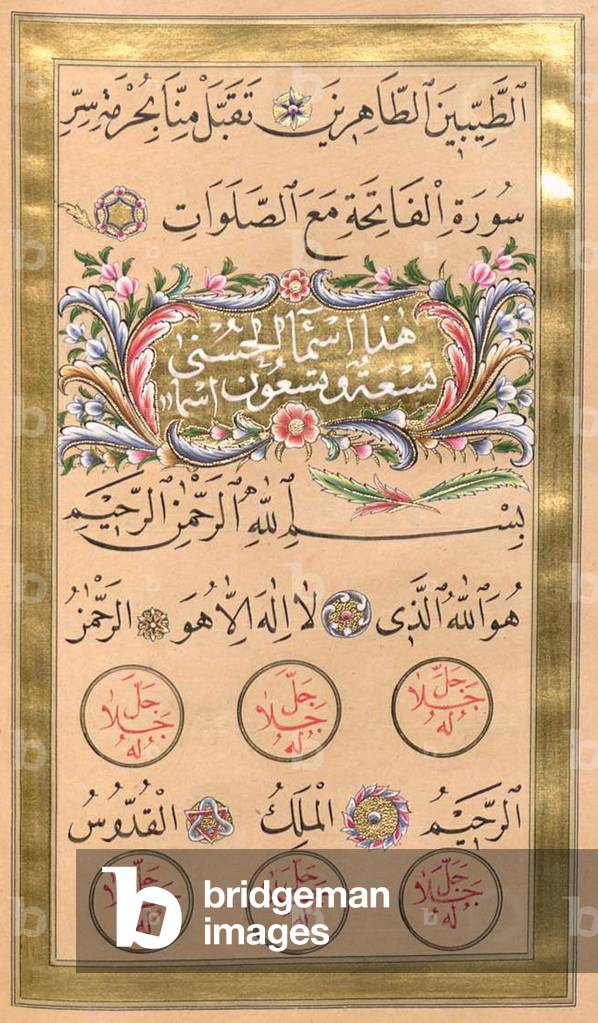 اَلطَّيِّبِينَ الطَّاهِرِينَ تَقَبَّلْ مِنَّا بِحُرْمَةِ سِرِّ
سُورَةِ الْفَاتِحَةِ مَعَ الصَّلَوَاتِ
هٰذَا اَسْمَآءُ الْحُسْنٰى
تِسْعَةٌ وَتِسْعُونَ اسمآء
بِسْمِ اللّٰهِ الرَّحْمٰنِ الرَّحِيمِ
هُوَ اللّٰهُ الَّذِى لَا اِلٰهَ اِلَّا هُوَ الرَّحْمٰنُ
جَلَّ جَلَالُهُ جَلَّ جَلَالُهُ جَلَّ جَلَالُهُ
اَلرَّحِيمُ الْمَلِكُ الْقُدُّوسُ
جَلَّ جَلَالُهُ جَلَّ جَلَالُهُ جَلَّ جَلَالُهُ
b bridgeman
images